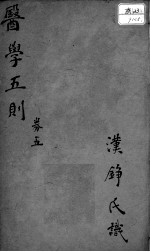 醫學五則
卷五
漢錚氏識